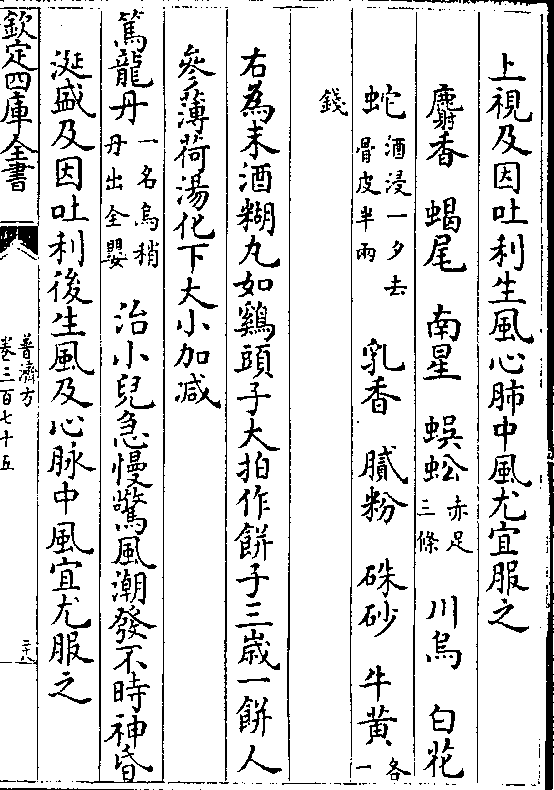 上視及因吐利生風心肺中風尤宜服之
麝香 蝎尾 南星 蜈蚣赤足三條 川烏 白花
蛇酒浸一夕去骨皮半兩 乳香 膩粉 硃砂 牛黄各一
錢
右為末酒糊丸如鷄頭子大拍作餅子三歲一餅人
參薄荷湯化下大小加减
篤龍丹一名烏稍丹出全嬰 治小兒急慢驚風潮發不時神昏
涎盛及因吐利後生風及心脉中風宜尤服之
欽定四庫全書
普濟方
卷三百七十五
二十八